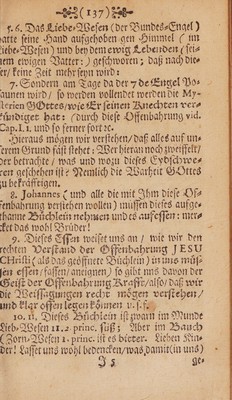 (137)
5. 6. Das Liebe-Wesen (der Bundes-Engel)
hatte seine Hand aufgehoben gen Himmel (im
Liebe-Wesen) und bey dem ewig Lebenden (sei-
nem ewigen Vatter;) geschworen; daß nach die-
ser/keine Zeit mehr seyn wird:
7. Sondern am Tage da der 7de Engel Po-
saunen wird/ so werden vollendet werden die My-
sterien GOttes/wie Er seinen Knechten ver-
kündiget hat: (durch diese Offenbahrung vid.
Cap. I. 1. und so ferner fort etc.
Hieraus mögen wir verstehen/daß alles auf un-
serem Grund fäst stehet: Wer hieran noch zweiffelt/
der betrachte/ was und wozu dieses Eydschwe-
ren geschehen ist? Nemlich die Warheit GOttes
zu bekräfftigen.
8. Johannes (und alle die mit Ihm diese Of-
fenbahrung verstehen wollen) müssen dieses aufge-
thanne Büchlein nehmen und es auffessen: mer-
cket das wohl Brüder!
9. Dieses Essen weiset uns an/ wie wir den
rechten Verstand der Offenbahrung JESU
CHristi (als das geöffnete Büchlein) in uns müs-
sen essen/fassen/aneignen/ so gibt uns davon der
Geist der Offenbahrung Krafft/also/daß wir
die Weissagungen recht mögen verstehen/
und klar offen legen können v. s. f.
10. 11. Dieses Büchlein ist zwarn im Munde
Lieb-Wesen 11. 2 princ. süß; Aber im Bauch
(Zorn-Wesen 1. princ. ist es bitter. Lieben Kin-
der! Lasset uns wohl bedencken/was damit (in uns)
ge-